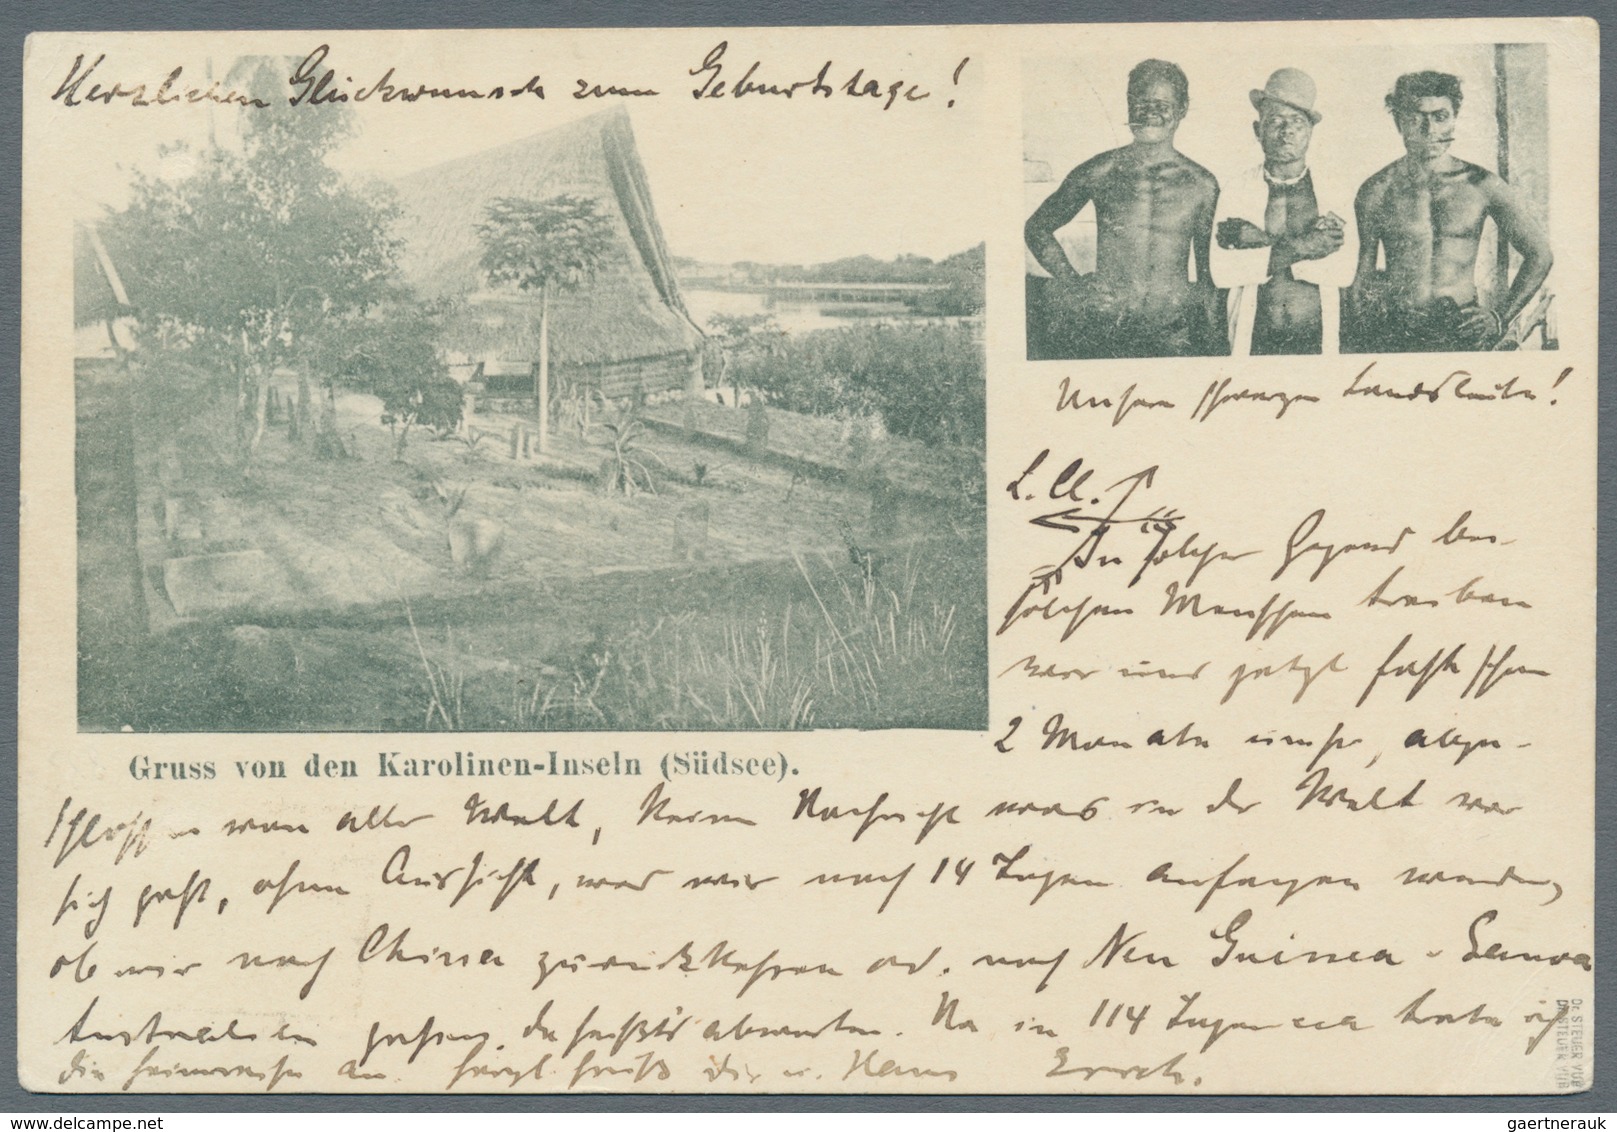 Herzlichen Glückwunsch zum Geburtstage!
Unsere schwarzen Landsleute!
L. A.
In solcher Gegend bei
solchen Menschen treiben
wir uns jetzt fast schon
2 Monate umher, abge-
schlossen von aller Welt, keine Nachricht was in der Welt vor
sich geht, ohne Aussicht, was wir nach 14 Tagen anfangen werden,
ob wir nach China zurückkehren od. nach Neu Guinea - Samoa
Australien gehen, da heißt's abwarten. Na in 114 Tagen trete ich
die Heimreise an. Herzl. Grüß Dir u. Hans Erich.
Gruss von den Karolinen-Inseln (Südsee).
Dr. STEUER VÖB
Dr. STEUER VÖB
gaertnerauk @ delcampe.net